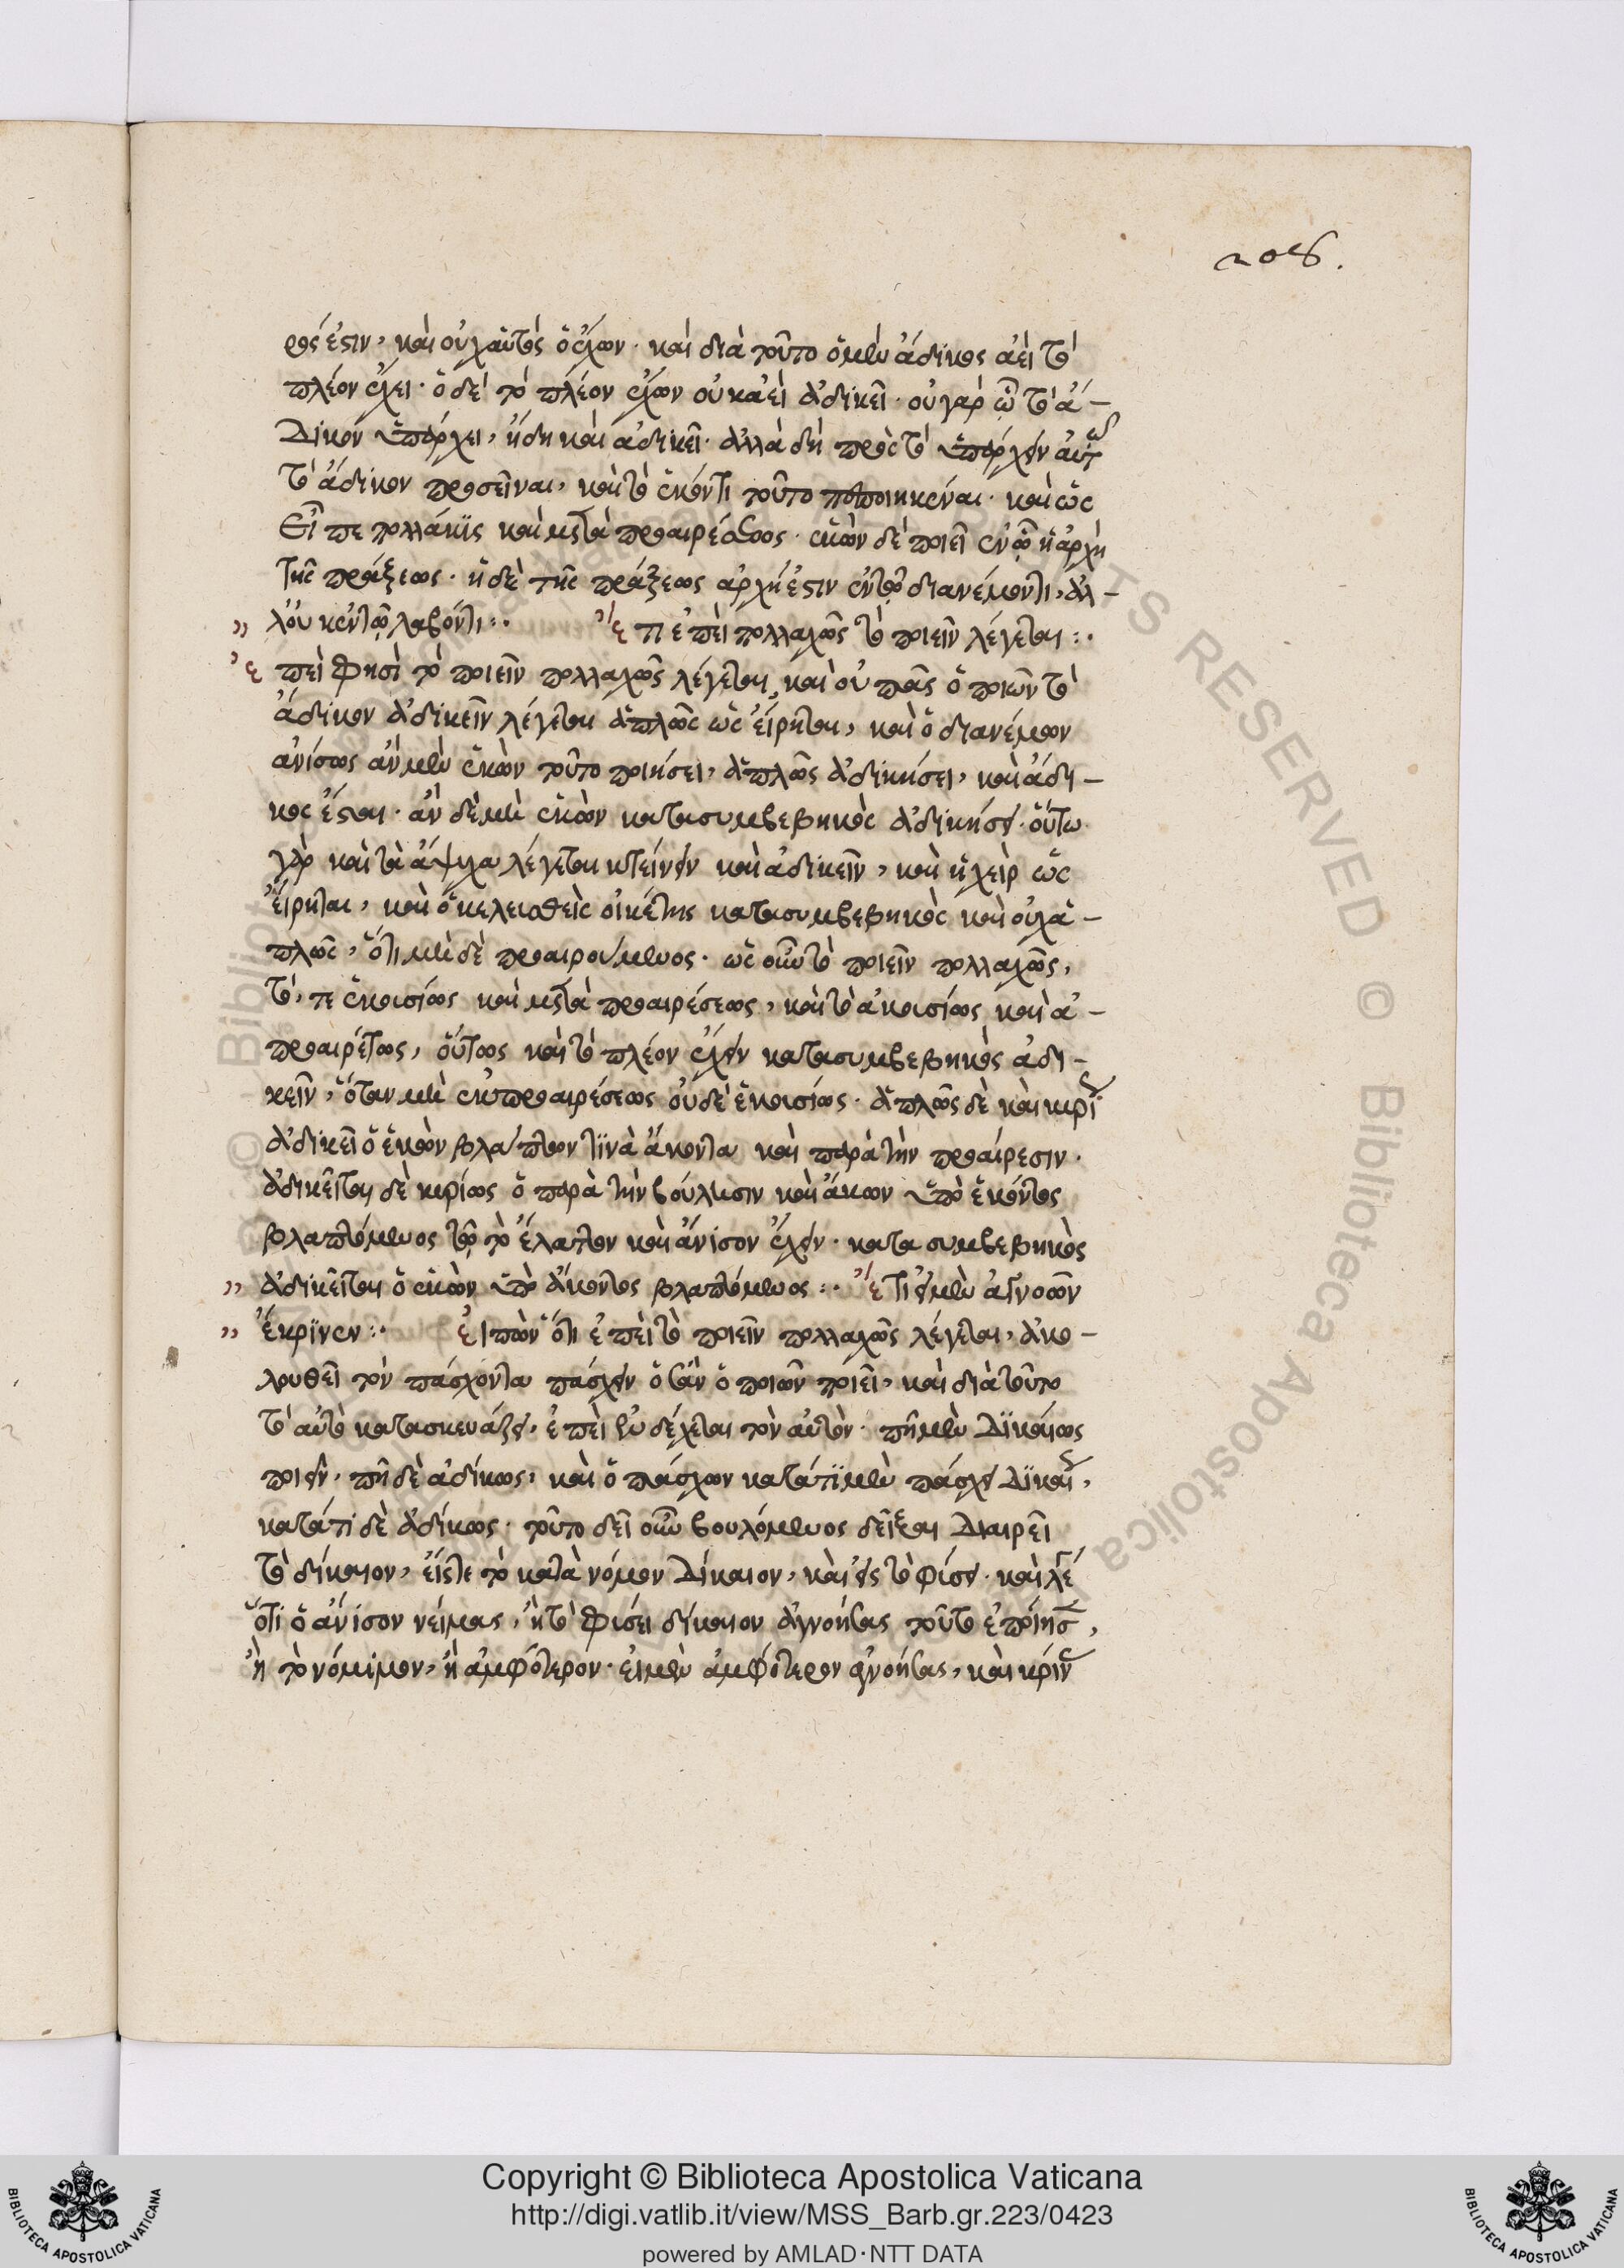 208.
ρός ἐστιν, καὶ οὐχ αὐτὸς ὁ ἔχων. καὶ διὰ τοῦτο ὁ μὲν ἄδικος ἀεὶ τὸ
πλέον ἔχει. ὁ δὲ τὸ πλέον ἔχων οὐκ ἀεὶ ἀδικεῖ. οὐ γὰρ ᾧ τὸ ἄ-
δικον ὑπάρχει, ἤδη καὶ ἀδικεῖ. ἀλλὰ δεῖ πρὸς τὸ ὑπάρχειν αὐτ
τὸ ἄδικον προσεῖναι, καὶ τὸ ἑκόντι τοῦτο πεποιηκέναι. καὶ ὡς
εἶπε πολλάκις καὶ μετὰ προαιρέσεως. ἑκὼν δὲ ποιεῖ ἐν ᾧ ἡ ἀρχὴ
τῆς πράξεως. ἡ δὲ τῆς πράξεως ἀρχή ἐστιν ἐν τῷ διανέμοντι, ἀλ-
λ' οὐκ ἐν τῷ λαβόντι:· ἔτι ἐπεὶ πολλαχῶς τὸ ποιεῖν λέγεται:·
ἐπεὶ φησὶ τὸ ποιεῖν πολλαχῶς λέγεται, καὶ οὐ πᾶς ὁ ποιῶν τὸ
ἄδικον ἀδικεῖν λέγεται ἁπλῶς ὡς εἴρηται, καὶ ὁ διανέμων
ἀνίσως ἂν μὲν ἑκὼν τοῦτο ποιήσει, ἁπλῶς ἀδικήσει, καὶ ἄδι-
κος ἔσται. ἂν δὲ μὴ ἑκὼν κατασυμβεβηκὸς ἀδικήσει. οὕτω
γὰρ καὶ τὰ ἄψυχα λέγεται κτείνειν καὶ ἀδικεῖν, καὶ ἡ χεὶρ ὡς
εἴρηται, καὶ ὁ κελευσθεὶς οἰκέτης κατασυμβεβηκὸς καὶ οὐχ ἁ-
πλῶς, ὅτι μὴ δὲ προαιρούμενος. ὡς οὖν τὸ ποιεῖν πολλαχῶς,
τό, τε ἑκουσίως καὶ μετὰ προαιρέσεως, καὶ τὸ ἀκουσίως καὶ ἀ-
προαιρέτως, οὕτως καὶ τὸ πλέον ἔχειν κατασυμβεβηκὸς ἀδι-
κεῖν, ὅταν μὴ ἐκ προαιρέσεως οὐδὲ ἑκουσίως. ἁπλῶς δὲ καὶ κυρί
ἀδικεῖ ὁ ἑκὼν βλάπτων τινὰ ἄκοντα καὶ παρὰ τὴν προαίρεσιν.
ἀδικεῖται δὲ κυρίως ὁ παρὰ τὴν βούλησιν καὶ ἄκων ὑπὸ ἑκόντος
βλαπτόμενος τῷ τὸ ἔλαττον καὶ ἄνισον ἔχειν. κατα συμβεβηκὸς
ἀδικεῖται ὁ ἑκὼν ὑπὸ ἄκοντος βλαπτόμενος:· ἔτι εἰ μὲν ἀγνοῶν
ἔκρινεν:· εἰπὼν ὅτι ἐπεὶ τὸ ποιεῖν πολλαχῶς λέγεται, ἀκο-
λουθεῖ τὸν πάσχοντα πάσχειν ὃ ἂν ὁ ποιῶν ποιεῖ, καὶ διὰ τοῦτο
τὸ αὐτὸ κατασκευάζει, ἐπεὶ ἐνδέχεται τὸν αὐτὸν. πῆ μὲν δικαίως
ποιεῖν, πῆ δὲ ἀδίκως, καὶ ὁ πάσχων κατάτι μὲν πάσχει δικαί,
κατάτι δὲ ἀδίκως. τοῦτο δεῖ οὖν βουλόμενος δεῖξαι διαιρεῖ
τὸ δίκαιον, εἴς τε τὸ κατὰ νόμον δίκαιον, καὶ εἰς τὸ φύσει. καὶ λέ
ὅτι ὁ ἄνισον νείμας, ἢ τὸ φύσει δίκαιον ἀγνοήσας τοῦτο ἐποίησ,
ἢ τὸ νόμιμον, ἢ ἀμφότερον. εἰ μὲν ἀμφότερον ἀγνοήσας, καὶ κρίν
Copyright © Biblioteca Apostolica Vaticana
http://digi.vatlib.it/view/MSS_Barb.gr.223/0423
powered by AMLAD·NTT DATA